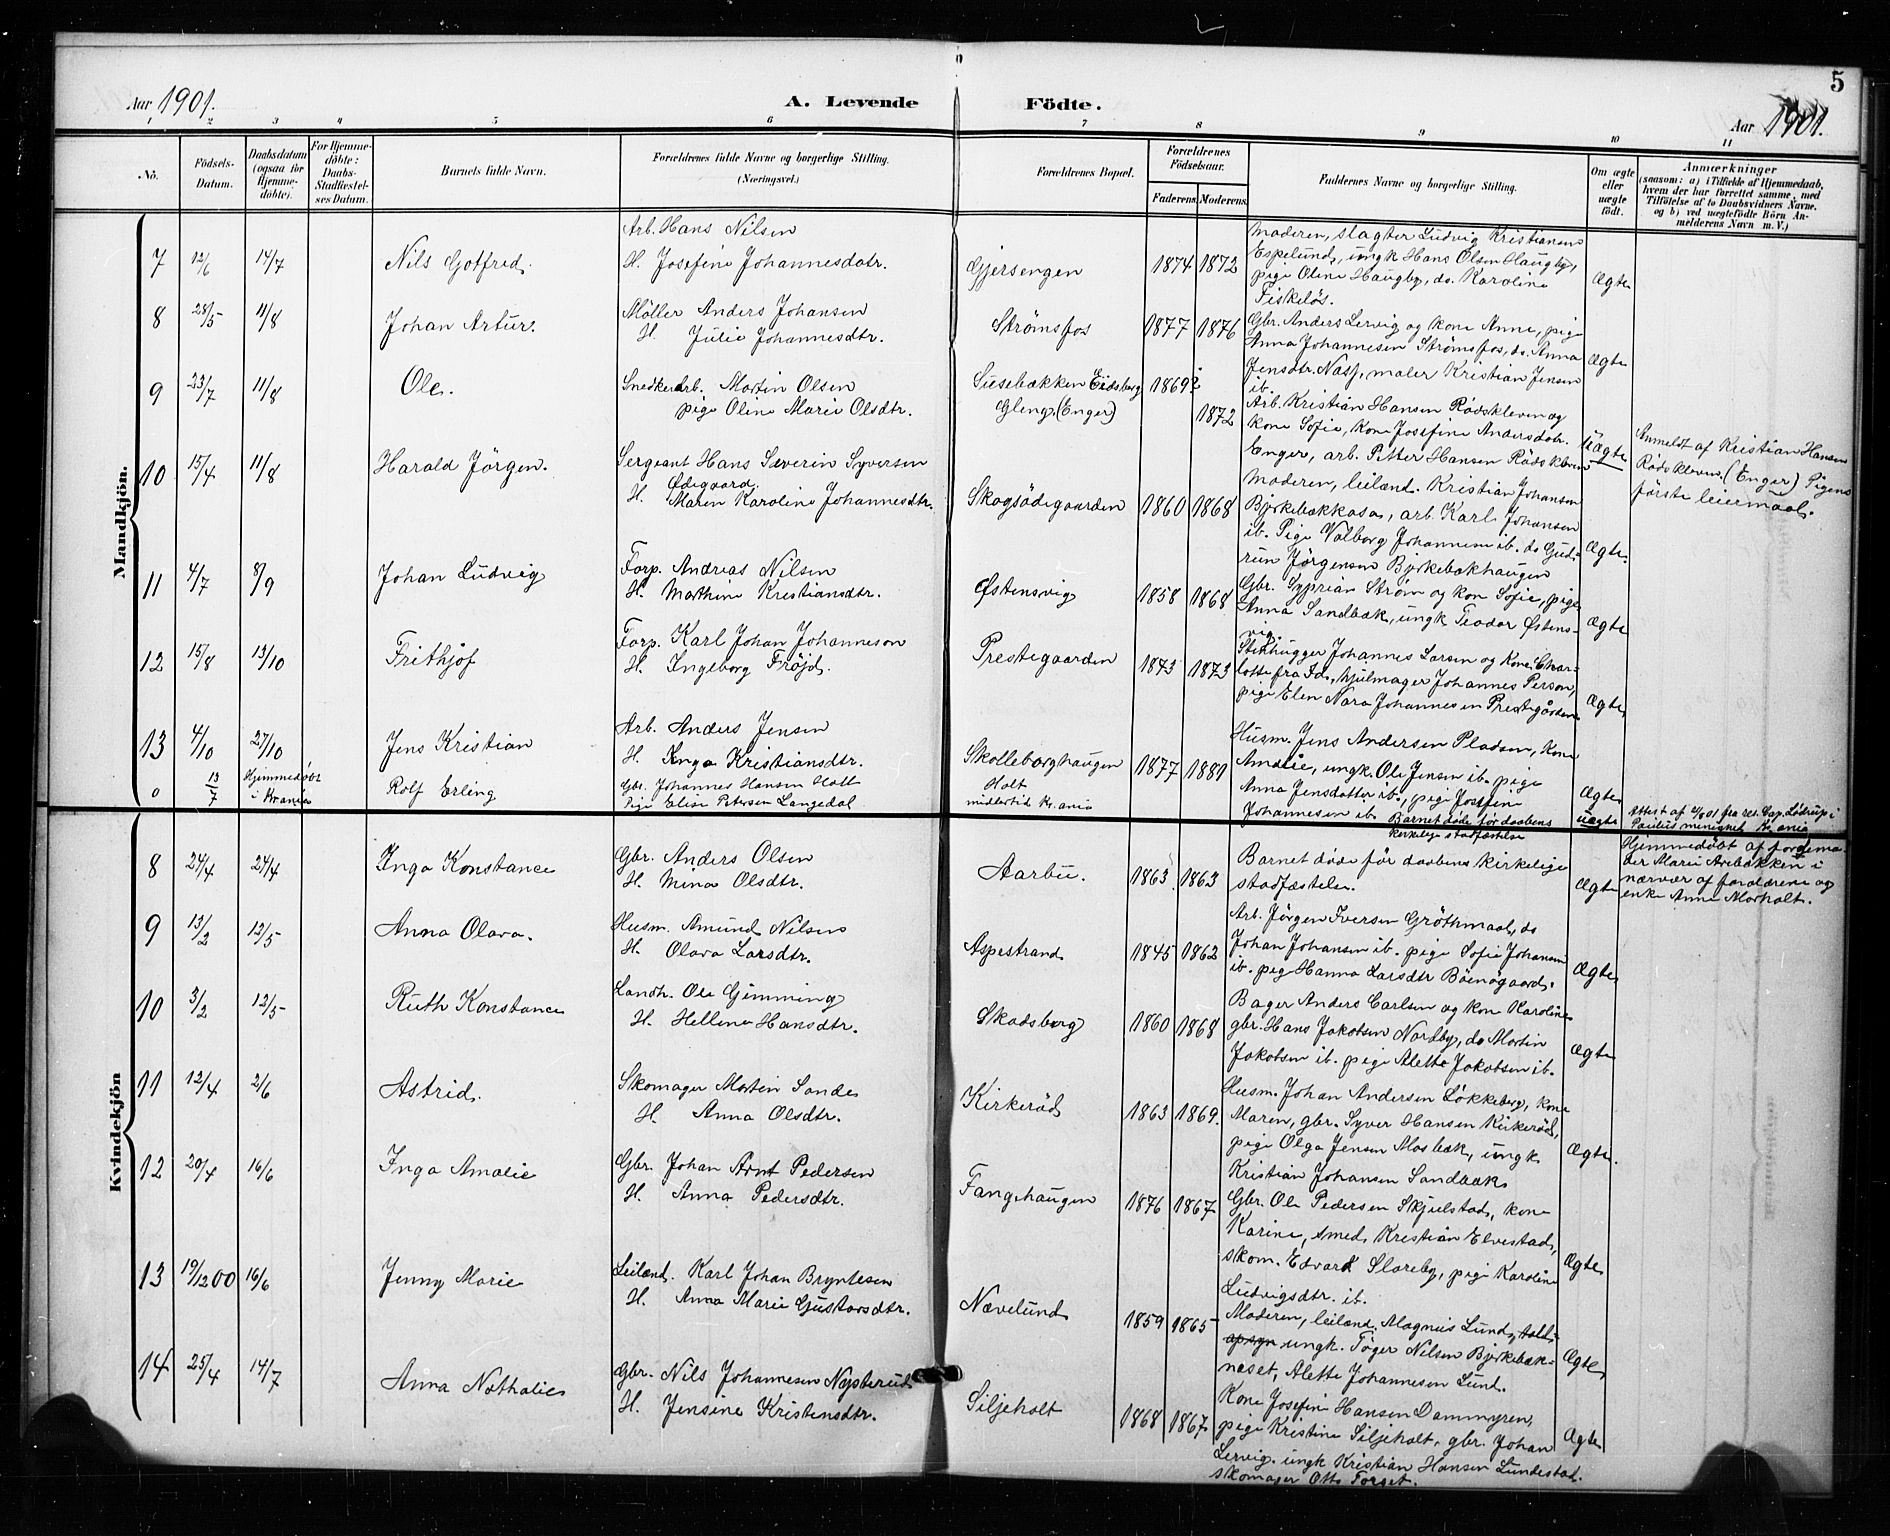 5
Aar 1901.
A. Levende Födte.
Aar 1901.
1 2 3 4 5 6 7 8 9 10 11
No.
Födsels-Datum.
Daabsdatum (ogsaa for Hjemme-döbte).
For Hjemme-döbte: Daabs-Stadfæstel-ses Datum.
Barnets fulde Navn.
Forældrenes fulde Navne og borgerlige Stilling. (Næringsvei.)
Forældrenes Bopæl.
Forældrenes Födselsaar.
Faderens. Moderens.
Faddernes Navne og borgerlige Stilling.
Om ægte eller uægte födt.
Anmærkninger
(saasom: a) i Tilfælde af Hjemmedaab,
hvem der har forrettet samme, med
Tilföielse af to Daabsvidners Navne.
og b) ved uægtefödte Börn An-
melderens Navn m. V.)
Mandkjön.
7 12/6 14/7 Nils Gotfred.
Arb. Hans Nilsen
H. Josefine Johannesdatr.
Gjersengen 1874 1872
Moderen, slagter Ludvig Kristiansen
Espelund, ungk Hans Olsen Haugby,
pige Oline Haugby, do. Karoline
Fiskelös.
Ægte
8 28/5 11/8 Johan Artur.
Möller Anders Johansen
H. Julie Johannesdtr.
Strømsfos 1877 1876
Gbr. Anders Lervig og kone Anne, pige
Anna Johannesen Strømsfos, do. Anna
Jensdtr. Næs, maler Kristian Jensen
ib.
Ægte
9 23/7 11/8 Ole.
Snedkerarb. Martin Olsen
pige Oline Marie Olsdtr.
Susebækken Eidsberg 1869?
Gleng (Enger) 1872
Arb. Kristian Hansen Rødskleven og
kone Sofie, kone Josefine Andersdatr.
Enger, arb. Petter Hansen Rødskleven
Uægte
Anmeldt af Kristian Hansen
Rødskleven (Enger) Pigens
første leiermaal.
10 15/4 11/8 Harald Jörgen.
Sergeant Hans Severin Syversen
Ødegaard.
H. Maren Karoline Johannesdtr.
Skogsödegaarden 1860 1868
Moderen, leilænd. Kristian Johansen
Bjørkebækkasa, arb. Karl Johansen
ib. Pige Valborg Johannesen ib. do Gud-
run Jörgensen Bjørkebækhaugen
Ægte.
11 4/7 8/9 Johan Ludvig
Forp. Andreas Nilsen
H. Mathine Kristiansdtr.
Østensvig 1858 1868
Gbr. Syprian Strøm og kone Sofie, pige
Anna Sandbæk, ungk Teodor Østens-
vig.
Ægte
12 15/8 13/10 Frithjof
Forp. Karl Johan Johanneson
H. Ingeborg Fröjd.
Prestegaarden 1873 1873
Stenhugger Johannes Larsen og Kone Char-
lotte fra Id, hjulmager Johannes Person,
pige Elen Nora Johannesen Prestegården
Ægte
13 4/10 27/10 Jens Kristian
Arb. Anders Jensen
H. Inga Kristiansdtr.
Skolleborghaugen 1877 1881
Husm. Jens Andersen Pladsen, Kone
Amalie, ungk. Ole Jensen ib. pige
Anna Jensdatter ib., pige Josefine
Johannesen ib.
Ægte
0 13/7 Hjemmedøbt i Kr.ania Rolf Erling
Gbr. Johannes Hansen Holt
Pige Elise Petersen Langedal
Holt
midlertid. Kr.ania
Barnet døde før daabens
kirkelige stadfæstelse
uægte
Attest af 2/8 01 fra res. Cap. Lødrup i
Paulus menighet Kr.ania
Kvindekjön
8 24/4 24/4 Inga Konstance
Gbr. Anders Olsen
H. Mina Olsdtr.
Aarbu. 1863 1863
Barnet døde før daabens kirkelige
stadfæstelse.
Ægte
Hjemmedøbt af jordemo-
der Marie Arebækken i
nærvær af forældrene og
enke Anne Morholt.
9 13/2 12/5 Anna Olava.
Husm. Amund Nilsen
H. Olava Larsdtr.
Aspestrand 1845 1862
Arb. Jörgen Iversen Gröthmaal, do
Johan Johansen ib. pige Sofie Johansen
ib. pige Hanna Larsdtr Böensgaard.
Ægte
10 3/2 12/5 Ruth Konstance
Landh. Ole Gimming
H. Helline Hansdtr.
Skadsberg 1860 1868
Bager Anders Carlsen og kone Karoline
gbr. Hans Jakobsen Nordby, do Martin
Jakobsen ib. pige Alette Jakobsen ib.
Ægte
11 12/4 2/6 Astrid.
Skomager Martin Sande
H. Anna Olsdtr.
Kirkeröd 1863 1869.
Husm. Johan Andersen Løkkeberg, kone
Maren, gbr. Syver Hansen Kirkeröd,
pige Olga Jensen Mosbæk, ungk
Kristian Johansen Sandbæk
Ægte.
12 20/4 16/6 Inga Amalie
Gbr. Johan Arnt Pedersen
H. Anna Pedersdtr.
Fangehaugen 1876 1867
Gbr. Ole Pedersen Skjelstad, kone
Karine, smed Kristian Elvestad,
skom. Edvard Slareby, pige Karoline
Ludvigsdtr. ib.
Ægte
13 19/12 00 16/6 Jenny Marie
Leilænd. Karl Johan Bryntesen
H. Anna Marie Gustavsdtr.
Nævelund 1859 1865
Moderen, leilænd. Magnus Lund, told-
opsyn ungk. Töger Nilsen Bjørkebæk-
næset, Alette Johannesen Lund.
Ægte
14 25/4 14/7 Anna Nathalie
Gbr. Nils Johannesen Nysterud
H. Jensine Kristensdtr.
Siljeholt 1868 1867
Kone Josefine Hansen Dammyren,
pige Kristine Siljeholt, gbr. Johan
Lervig, ungk Kristian Hansen Lundestad
skomager Otto Torget.
Ægte